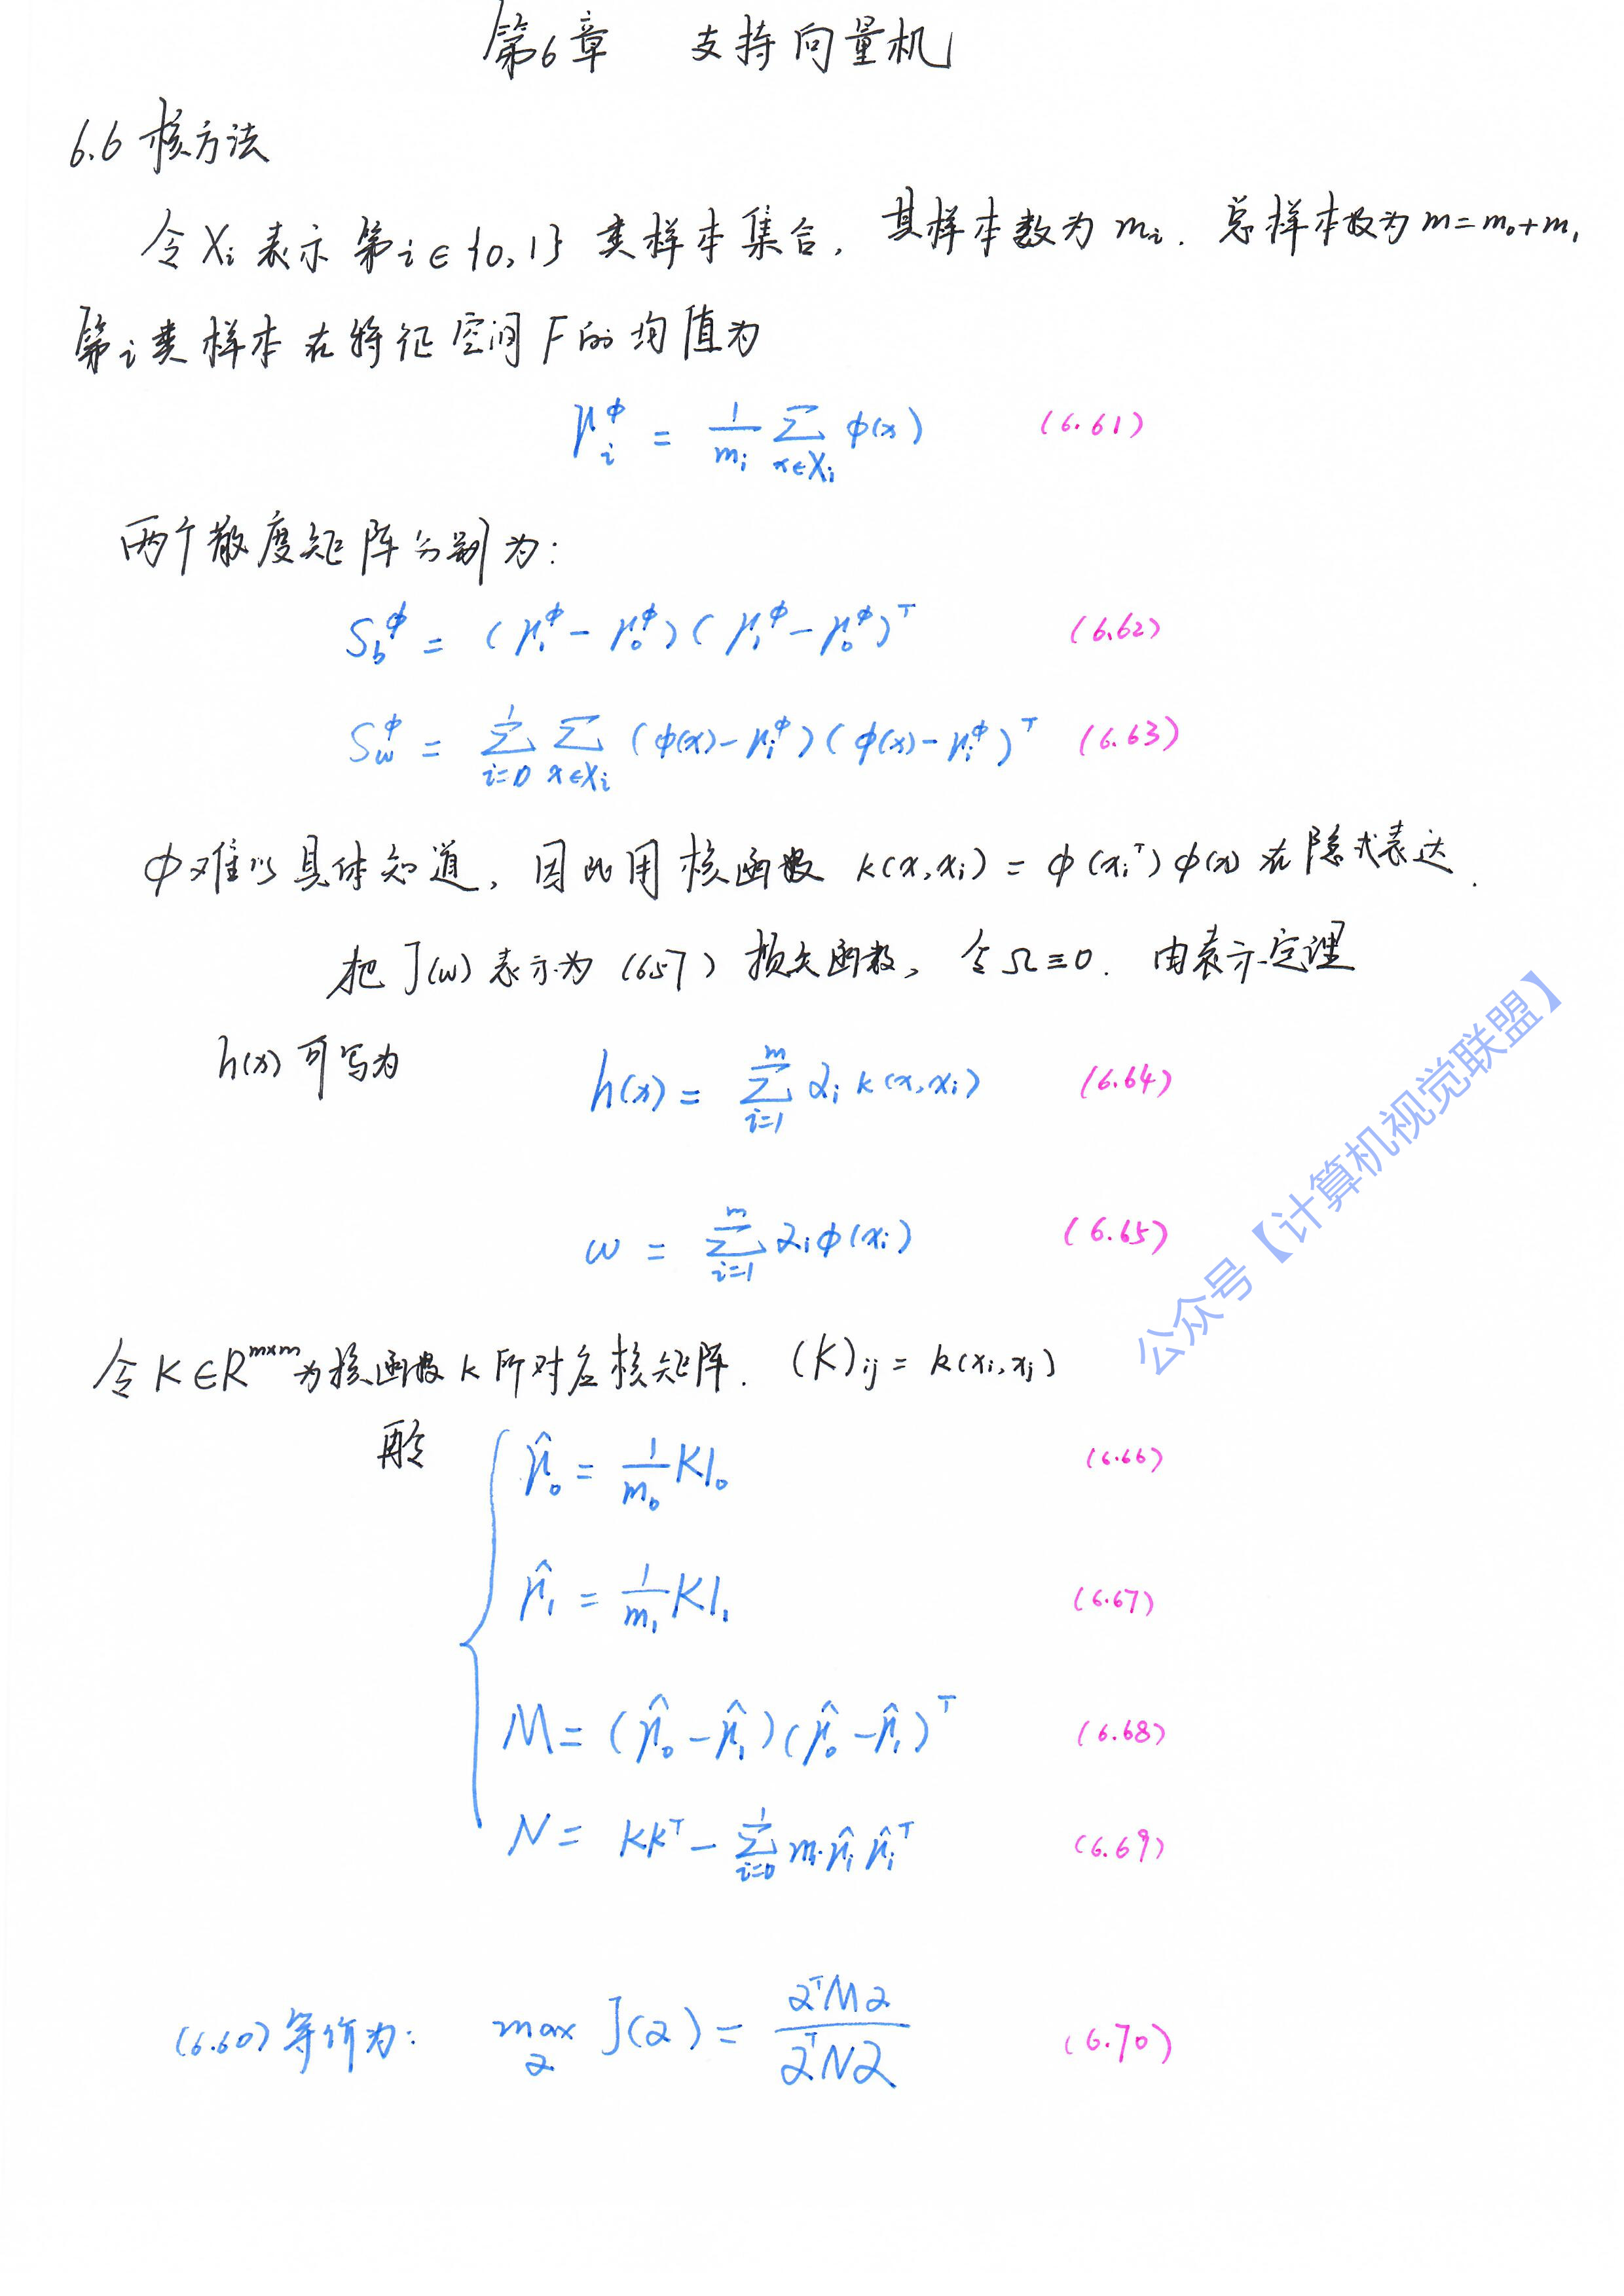 第6章 支持向量机
6.6 核方法
令 Xᵢ 表示第 i∈{0,1} 类样本集合, 其样本数为 mᵢ. 总样本数为 m=m₀+m₁
第 i 类样本在特征空间 F 的均值为
μᵢ^ϕ = 1/mᵢ ∑_{x∈Xᵢ} ϕ(x) (6.61)
两个散度矩阵分别为:
S_b^ϕ = (μ₁^ϕ − μ₀^ϕ)(μ₁^ϕ − μ₀^ϕ)^T (6.62)
S_w^ϕ = ∑_{i=0}^{1} ∑_{x∈Xᵢ} (ϕ(x)−μᵢ^ϕ)(ϕ(x)−μᵢ^ϕ)^T (6.63)
ϕ难以具体知道, 因此用核函数 k(x,xᵢ) = ϕ(xᵢ^T)ϕ(x) 在隐式表达.
把 J(ω) 表示为 (657) 损失函数, 令 Ω≡0. 由表示定理
h(x) 可写为
h(x) = ∑_{i=1}^{m} αᵢ k(x,xᵢ) (6.64)
ω = ∑_{i=1}^{m} αᵢϕ(xᵢ) (6.65)
令 K∈R^{m×m} 为核函数 k 所对应核矩阵. (K)ᵢⱼ = k(xᵢ,xⱼ)
再令
μ̂₀ = 1/m₀ K1₀ (6.66)
μ̂₁ = 1/m₁ K1₁ (6.67)
M = (μ̂₀ − μ̂₁)(μ̂₀ − μ̂₁)^T (6.68)
N = KK^T − ∑_{i=0}^{1} mᵢ μ̂ᵢ μ̂ᵢ^T (6.69)
(6.60) 等价为: max_α J(α) = α^T M α / α^T N α (6.70)
公众号【计算机视觉联盟】